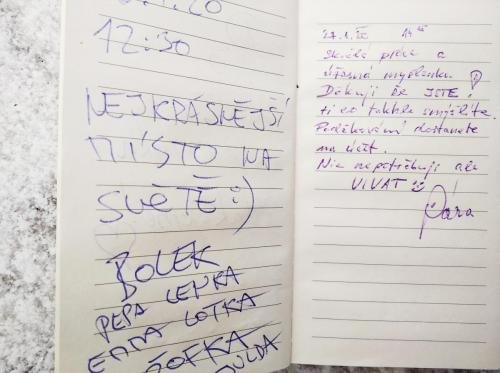 12:30
NEJKRÁSNĚJŠÍ
MÍSTO NA
SVĚTĚ :)
BOLEK
PEPA LENKA
EMMA LOTKA
ŽOFKA
27.1. 14
Skvělá práce a
úžasná myšlenka
Děkuji že JSTE,
ti co takhle smýšlíte.
Poděkování dostanete
na účet.
Nic nepotřebuji ale
VIVAT